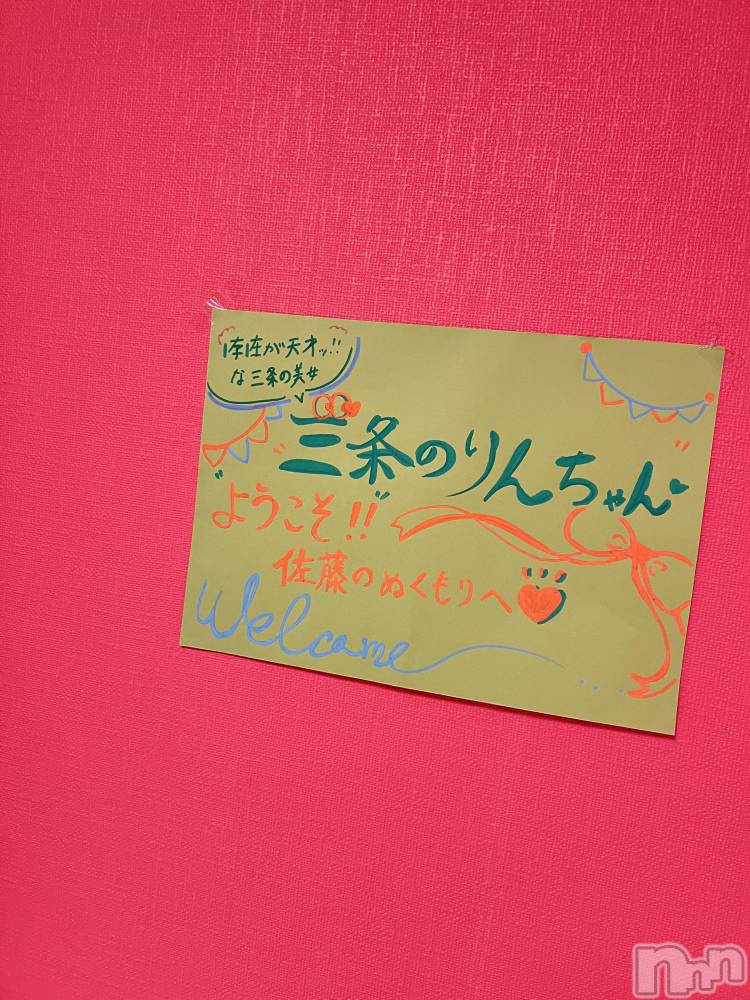 存在が天才ッ!!
な三条の美女
三条のりんちゃん
"ようこそ!!"
佐藤のぬくもりへ
Welcome
...
nnn